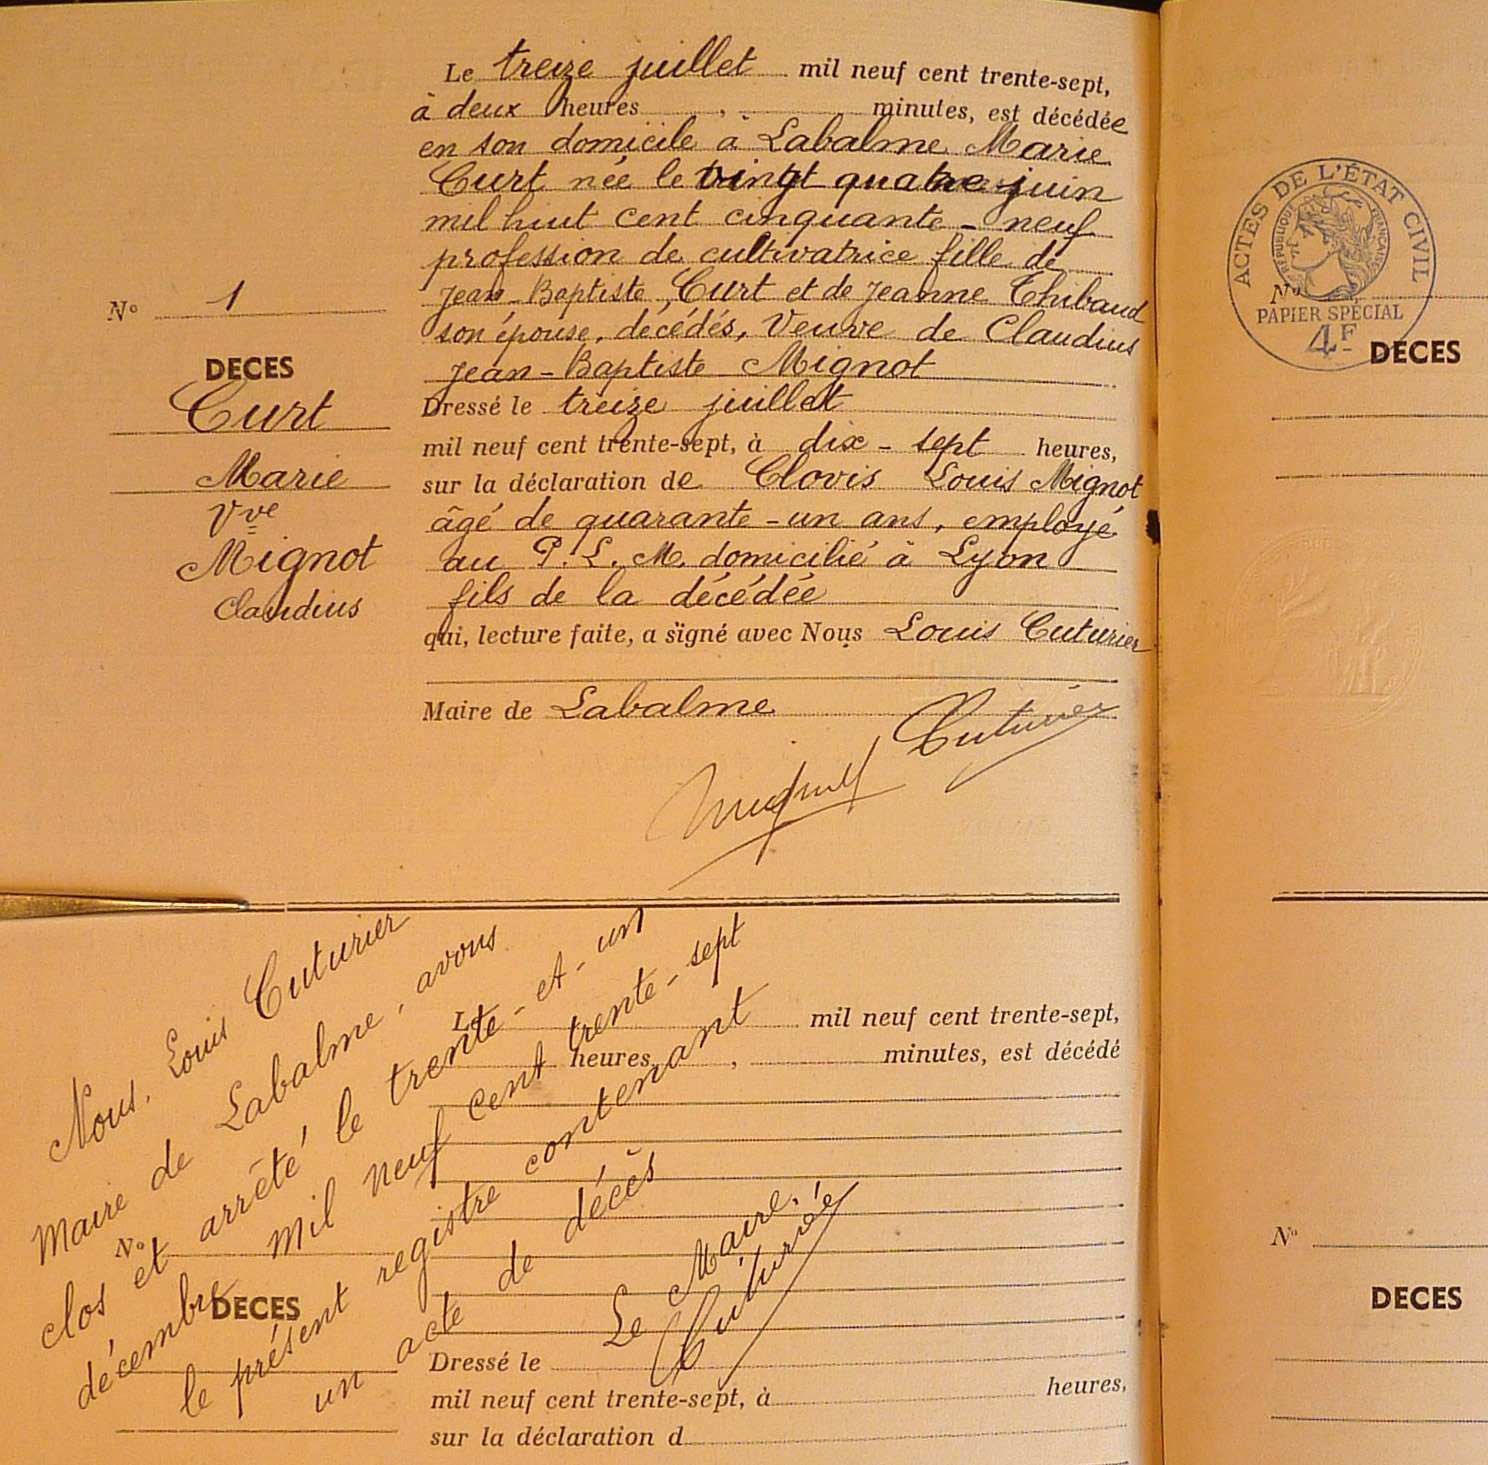 Le treize juillet mil neuf cent trente-sept,
à deux heures , minutes, est décédée
en son domicile à Labalme Marie
Curt née le vingt quatre juin
mil huit cent cinquante-neuf
profession de cultivatrice fille de
Jean-Baptiste Curt et de Jeanne Thibaud
son épouse, décédés, Veuve de Claudius
Jean-Baptiste Mignot
Dressé le treize juillet
mil neuf cent trente-sept, à dix-sept heures,
sur la déclaration de Clovis Louis Mignot
âgé de quarante-un ans, employé
au P.L.M. domicilié à Lyon
fils de la décédée
qui, lecture faite, a signé avec Nous Louis Cuturier
Maire de Labalme
Cuturier
Nº 1
DECES
Curt
Marie
Vve
Mignot
Claudius
Nous, Louis Cuturier
Maire de Labalme, avons
clos et arrêté le trente-et-un
décembre mil neuf cent trente-sept
le présent registre contenant
un acte de décès
Le Maire,
Cuturier
Le mil neuf cent trente-sept,
heures, , minutes, est décédé
Nº
DECES
Dressé le
mil neuf cent trente-sept, à heures,
sur la déclaration d
ACTES DE L'ÉTAT CIVIL
RÉPUBLIQUE FRANÇAISE
Nº
PAPIER SPÉCIAL
4F
DECES
Nº
DECES